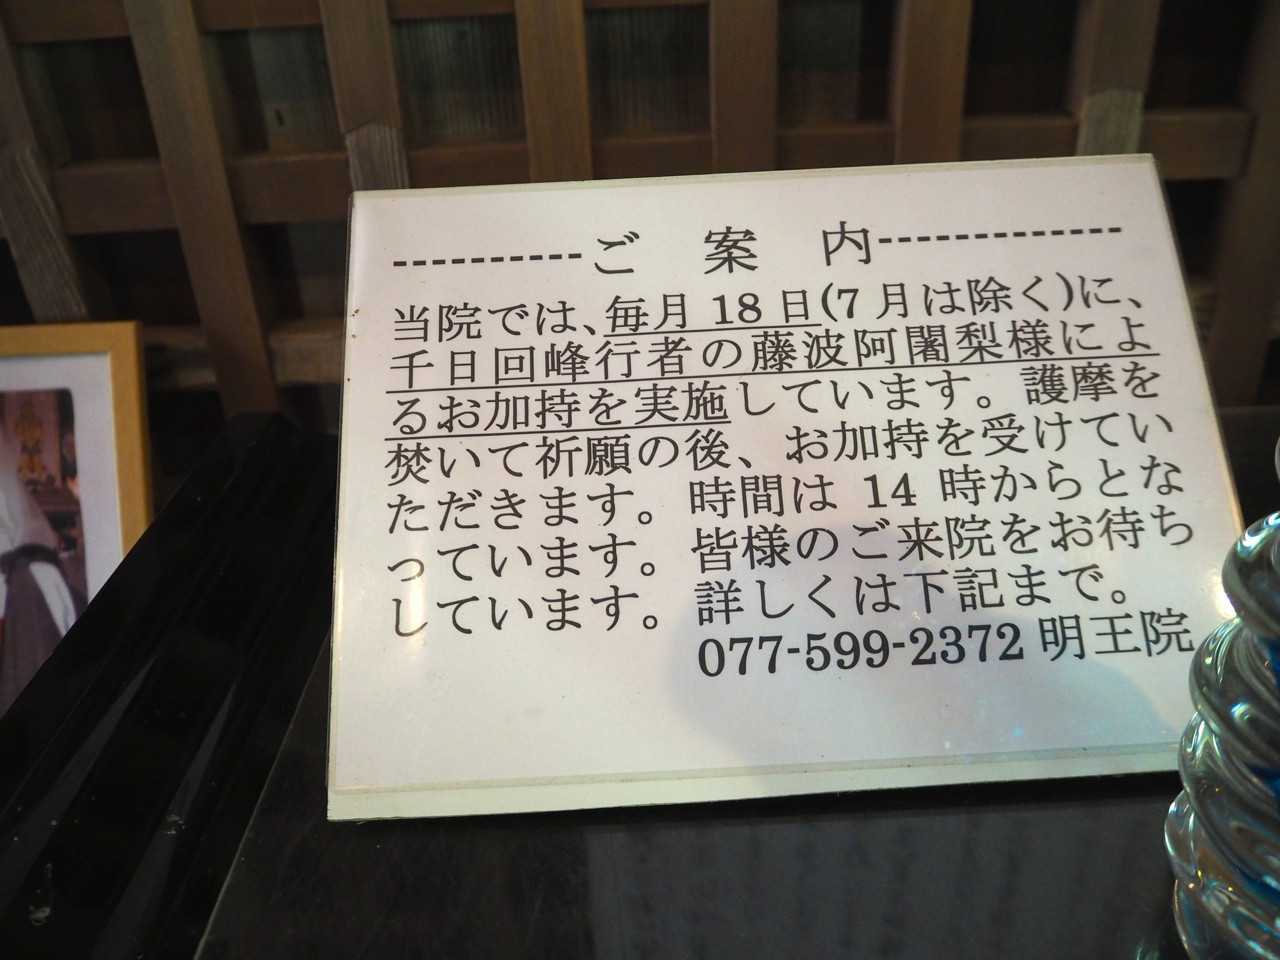 ----------ご　案　内-------------
当院では、毎月 18 日(7 月は除く)に、
千日回峰行者の藤波阿闍梨様によ
るお加持を実施しています。護摩を
焚いて祈願の後、お加持を受けてい
ただきます。時間は 14 時からとな
っています。皆様のご来院をお待ち
しています。詳しくは下記まで。
077-599-2372 明王院